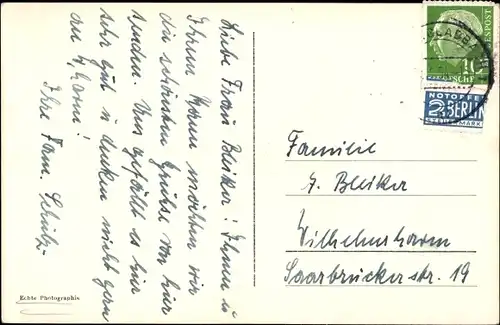 Liebe Frau Bleiker! Ihnen u.
Ihrem Mann möchten wir
die schönsten Grüße von hier
senden. Uns gefällt es hier
sehr gut u. denken nicht gern
an W,haven!
Ihre Fam. Schütz-
Echte Photographie
Familie
J. Bleiker
Wilhelmshaven
Saarbrückerstr. 19
10
NOTOPFER
2 BERLIN
STEUERMARKE